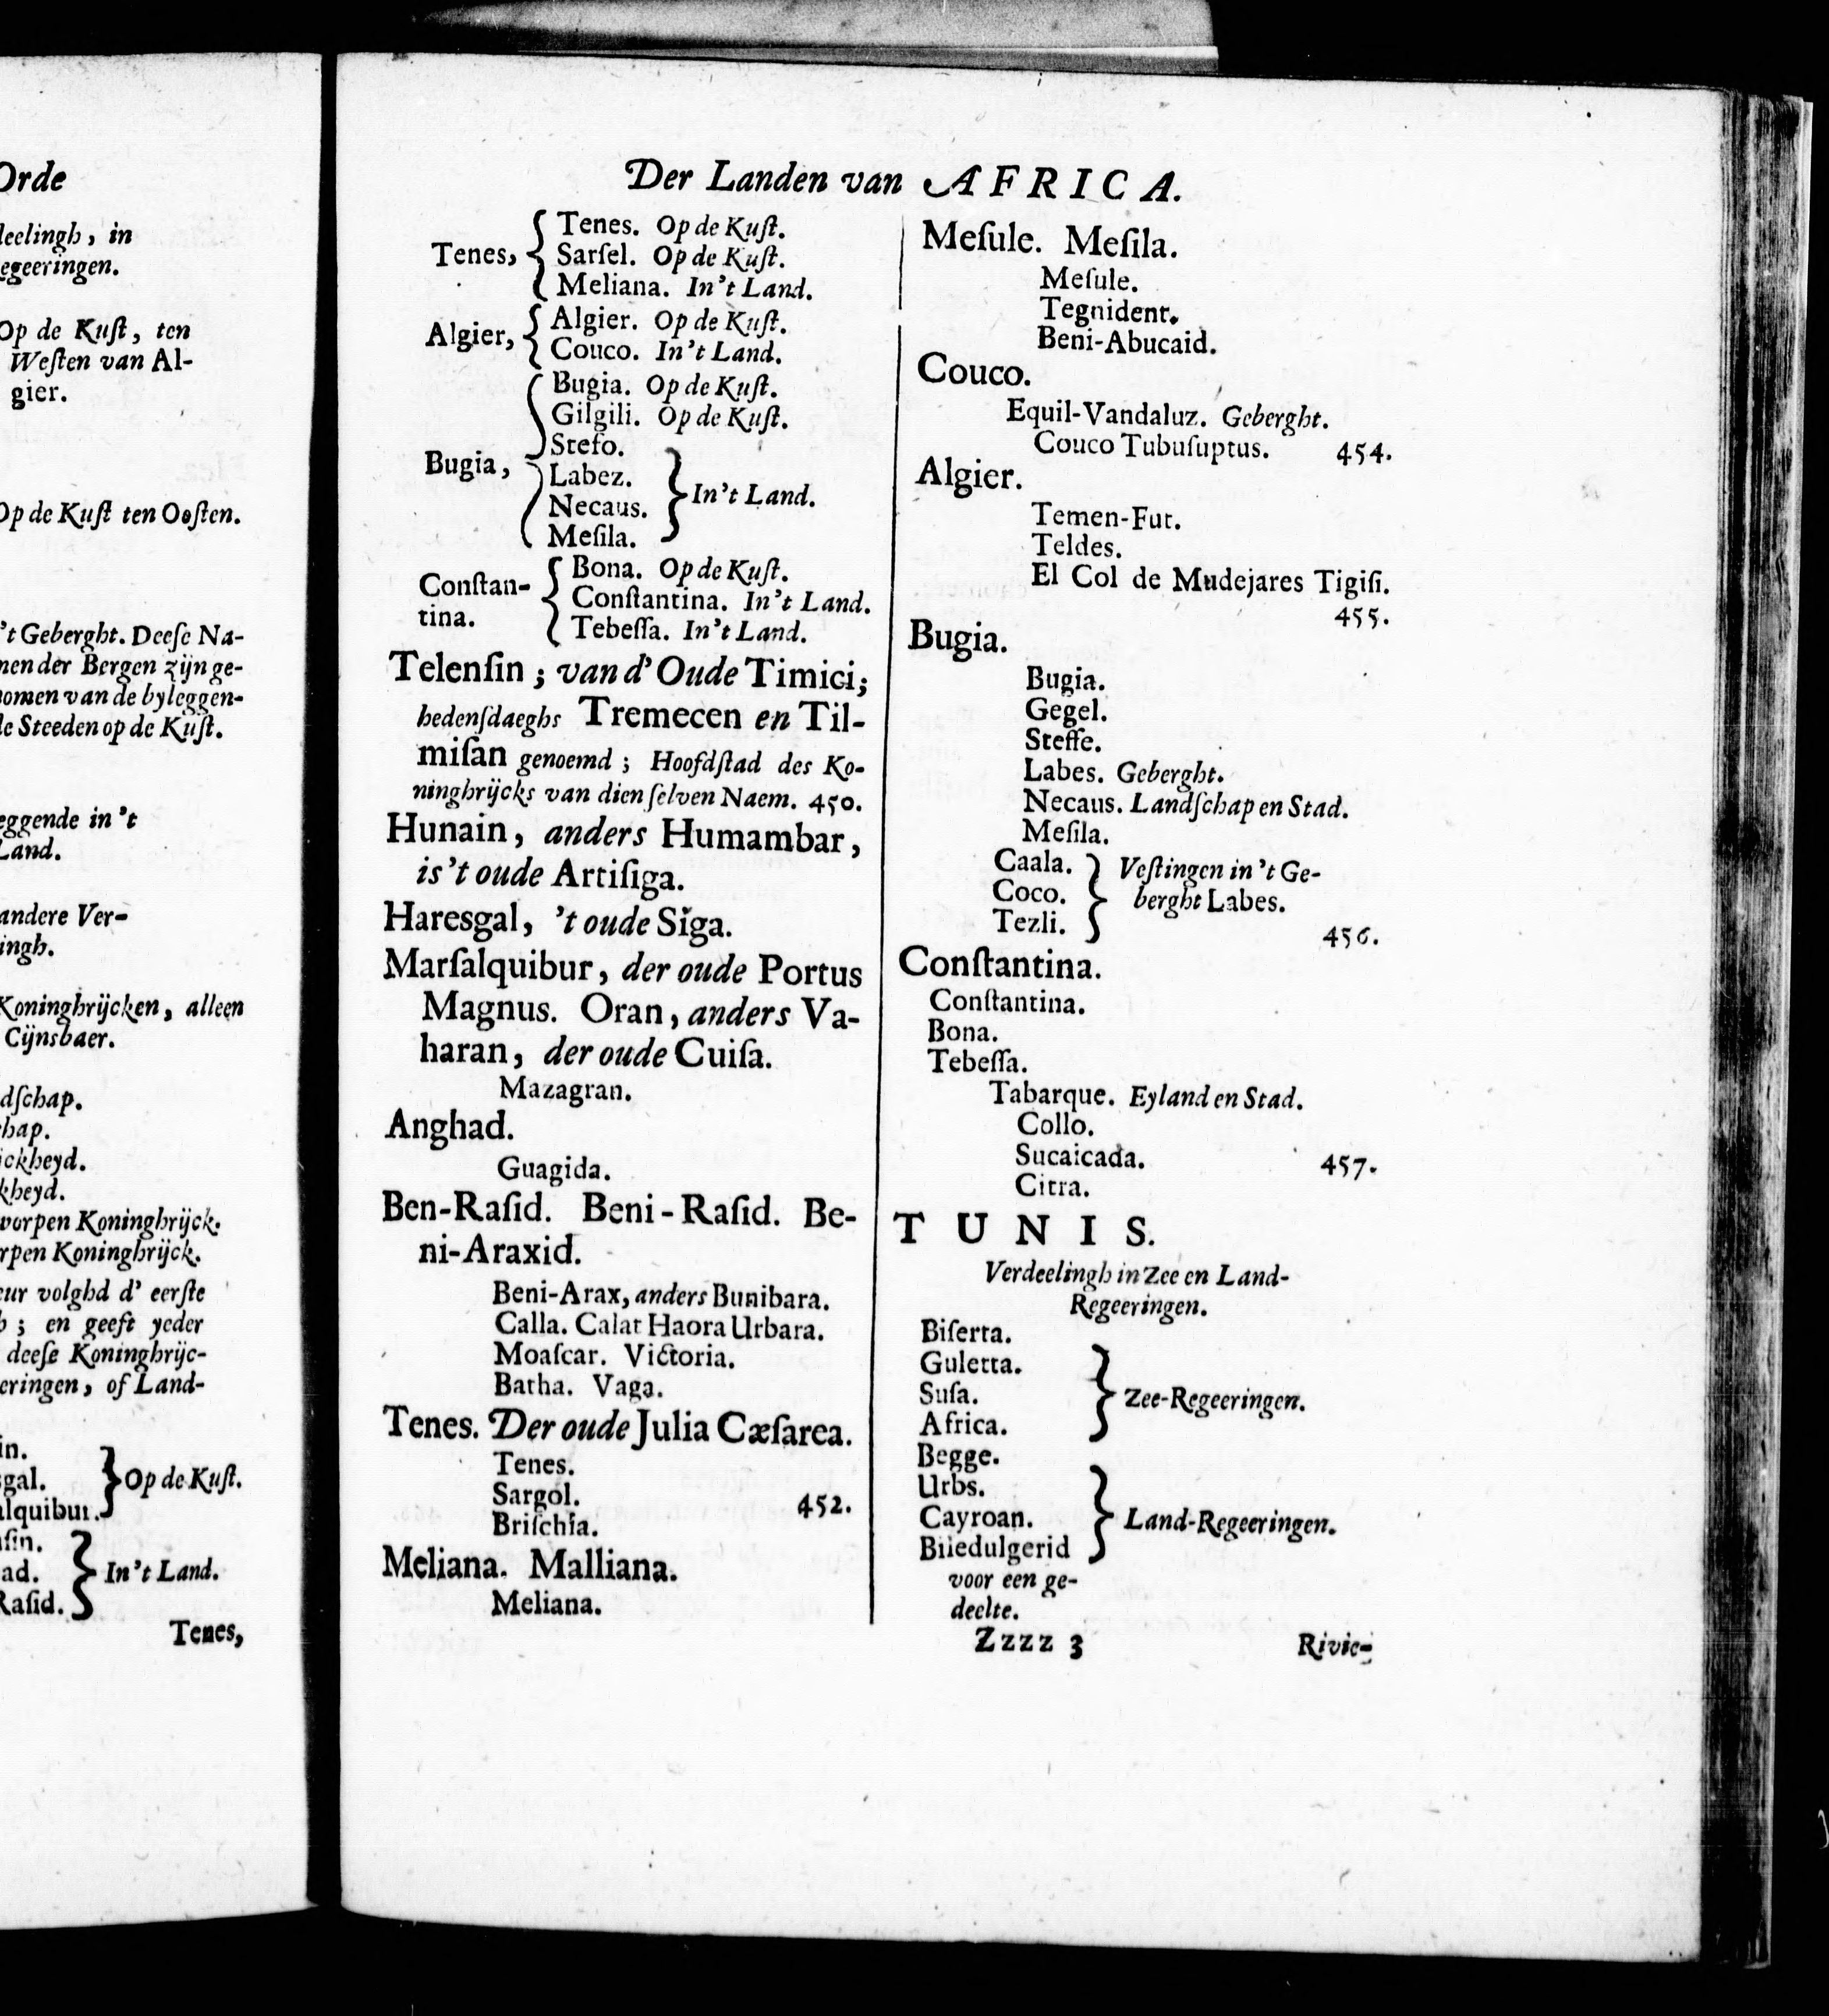 Orde
deelingh, in
egeeringen.
Op de Kuſt, ten
Weſten van Al-
gier.
Op de Kuſt ten Ooſten.
't Geberght. Deeſe Na-
men der Bergen zijn ge-
nomen van de byleggen-
de Steeden op de Kuſt.
eggende in 't
Land.
andere Ver-
ingh.
Koninghrijcken, alleen
Cijnsbaer.
dſchap.
chap.
ickheyd.
kheyd.
vorpen Koninghrijck.
rpen Koninghrijck.
eur volghd d' eerſte
; en geeft yeder
deeſe Koninghrijc-
eringen, of Land-
in.
gal. Op de Kuſt.
alquibur.
ſin.
ad. In't Land.
Raſid.
Tenes,
Der Landen van AFRICA.
Tenes. Op de Kuſt.
Tenes, Sarſel. Op de Kuſt.
Meliana. In't Land.
Algier, Algier. Op de Kuſt.
Couco. In't Land.
Bugia. Op de Kuſt.
Gilgili. Op de Kuſt.
Stefo.
Bugia, Labez.
Necaus. In't Land.
Meſila.
Conſtan- Bona. Op de Kuſt.
tina. Conſtantina. In't Land.
Tebeſſa. In't Land.
Telenſin; van d' Oude Timici;
hedenſdaeghs Tremecen en Til-
miſan genoemd; Hoofdſtad des Ko-
ninghrijcks van dien ſelven Naem. 450.
Hunain, anders Humambar,
is 't oude Artiſiga.
Haresgal, 't oude Siga.
Marſalquibur, der oude Portus
Magnus. Oran, anders Va-
haran, der oude Cuiſa.
Mazagran.
Anghad.
Guagida.
Ben-Raſid. Beni-Raſid. Be-
ni-Araxid.
Beni-Arax, anders Bunibara.
Calla. Calat Haora Urbara.
Moaſcar. Victoria.
Batha. Vaga.
Tenes. Der oude Julia Cæſarea.
Tenes.
Sargol. 452.
Briſchia.
Meliana. Malliana.
Meliana.
Meſule. Meſila.
Meſule.
Tegnident.
Beni-Abucaid.
Couco.
Equil-Vandaluz. Geberght.
Couco Tubuſuptus. 454.
Algier.
Temen-Fut.
Teldes.
El Col de Mudejares Tigiſi.
455.
Bugia.
Bugia.
Gegel.
Steffe.
Labes. Geberght.
Necaus. Landſchap en Stad.
Meſila.
Caala. Veſtingen in 't Ge-
Coco. berght Labes.
Tezli.
456.
Conſtantina.
Conſtantina.
Bona.
Tebeſſa.
Tabarque. Eyland en Stad.
Collo.
Sucaicada. 457.
Citra.
TUNIS.
Verdeelingh in Zee en Land-
Regeeringen.
Biſerta.
Guletta.
Suſa. Zee-Regeeringen.
Africa.
Begge.
Urbs.
Cayroan. Land-Regeeringen.
Biledulgerid
voor een ge-
deelte.
Zzzz 3 Rivie-